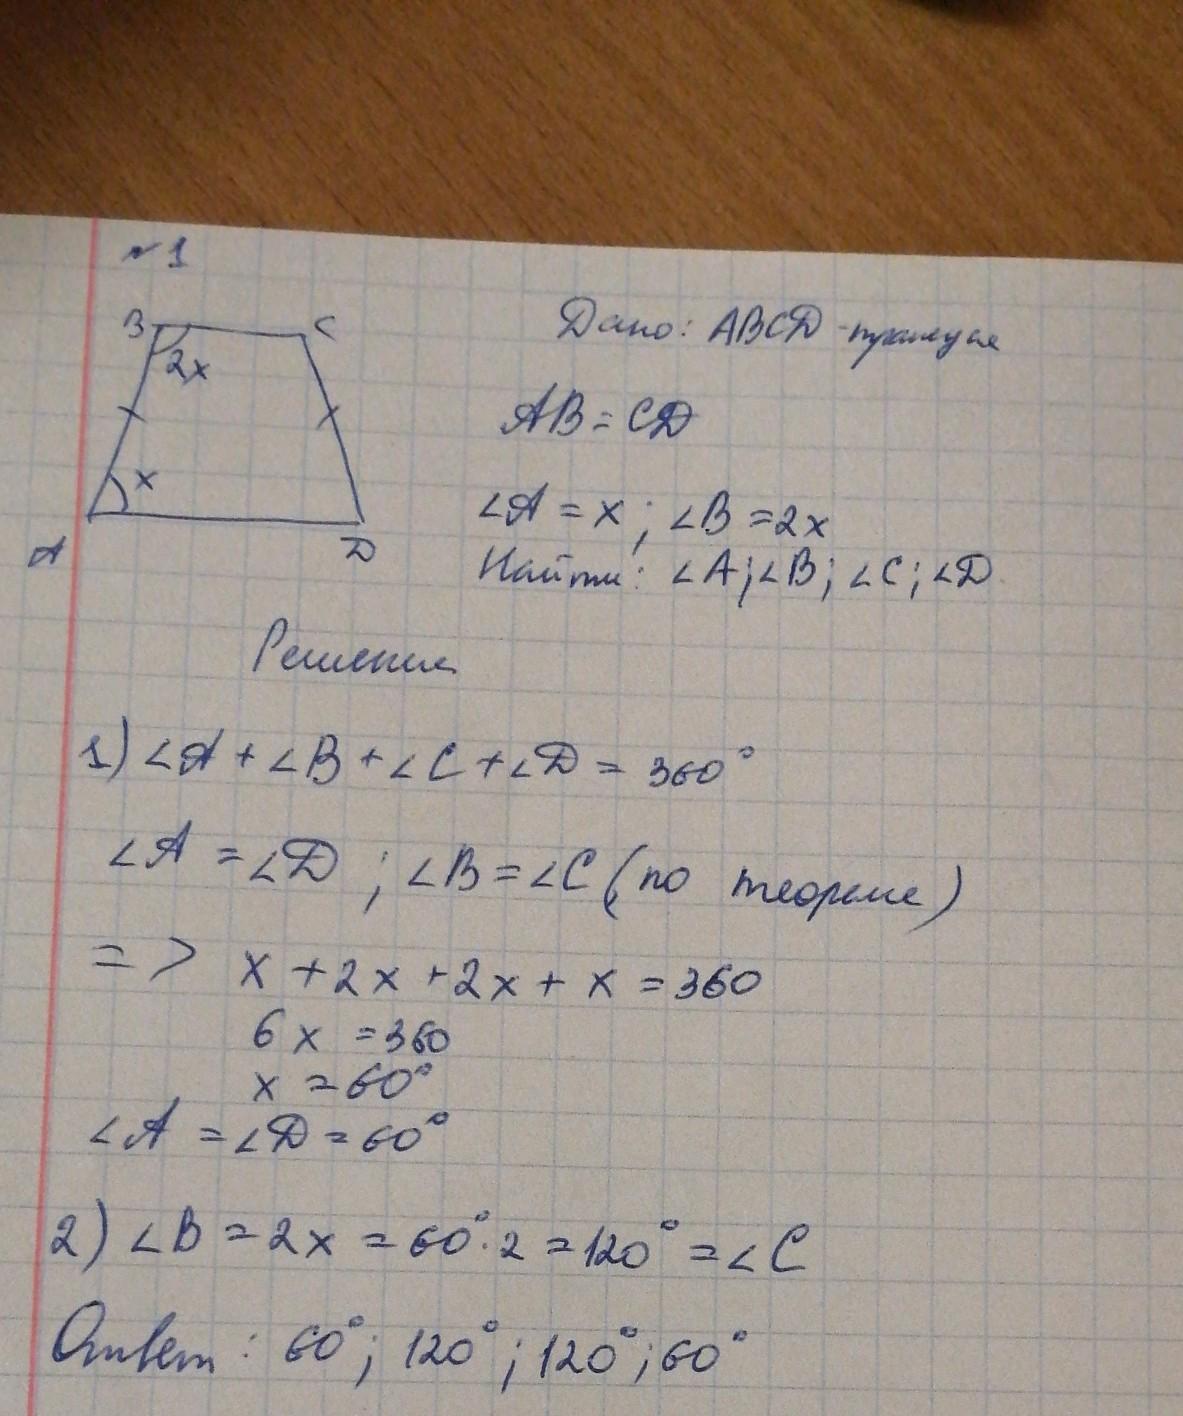 №1
B C
2x
x
A D
Дано: ABCD - трапеция
AB = CD
∠A = x ; ∠B = 2x
Найти: ∠A; ∠B; ∠C; ∠D
Решение
1) ∠A + ∠B + ∠C + ∠D = 360°
∠A = ∠D ; ∠B = ∠C (по теореме)
=> x + 2x + 2x + x = 360
6x = 360
x = 60°
∠A = ∠D = 60°
2) ∠B = 2x = 60° · 2 = 120° = ∠C
Ответ: 60°; 120°; 120°; 60°